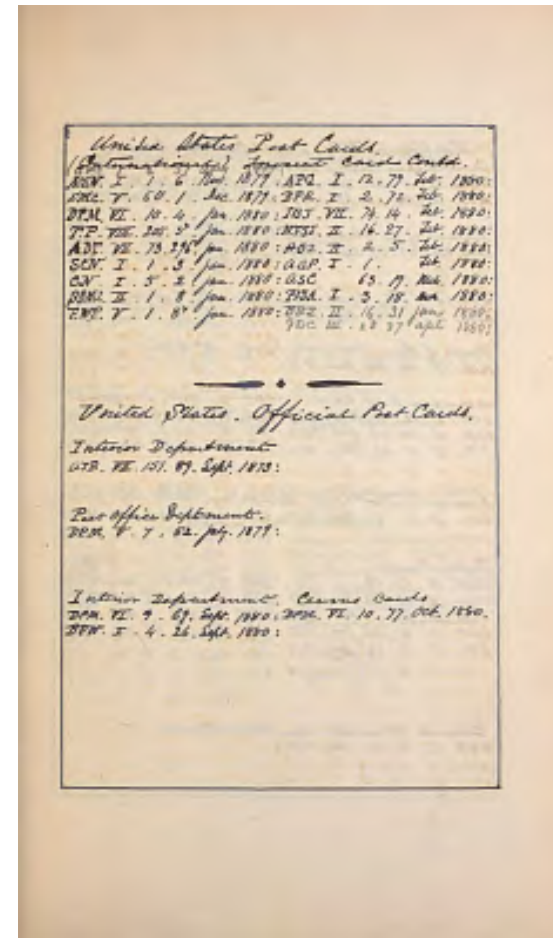 United States Post Cards.
(International) Present Card Contd.
I . 1 . 6 . Nov. 1879 : APQ . I . 12 . 79 . Feb. 1880:
V . 60 . 1 . Dec. 1879 : BPR . I . 2 . 72 . Feb. 1880:
DPM. VI . 10 . 4 . Jan. 1880 : VII . 74 . 14 . Feb. 1880:
T.P. VIII . Jan. 1880 : II . 16 . 27 . Feb. 1880:
ADT. VII . 73 . Jan. 1880 : II . 2 . 5 . Feb. 1880:
SCN . I . 1 . 3 . Jan. 1880 : I . 1 . Feb. 1880:
CN . I . 5 . 2 Jan. 1880 : ASC 63 . 19 . Mch. 1880:
II . 1 . 8 Jan. 1880 : I . 3 . 18 . 1880:
V . 1 . 8 Jan. 1880 : II . 16 . 31 June 1880:
III . 27 Apl. 1880:
United States . Official Post Cards.
Interior Department
VII . 151 . 89 . Sept. 1873:
Post Office Deptment.
DPM. V . 7 . 52 . July . 1879 :
Interior Department . Census Cards
DPM. VI . 9 . 69 . Sept. 1880 : DPM. VI . 10 . 77 . Oct. 1880.
I . 4 . 26 . Sept. 1880 :